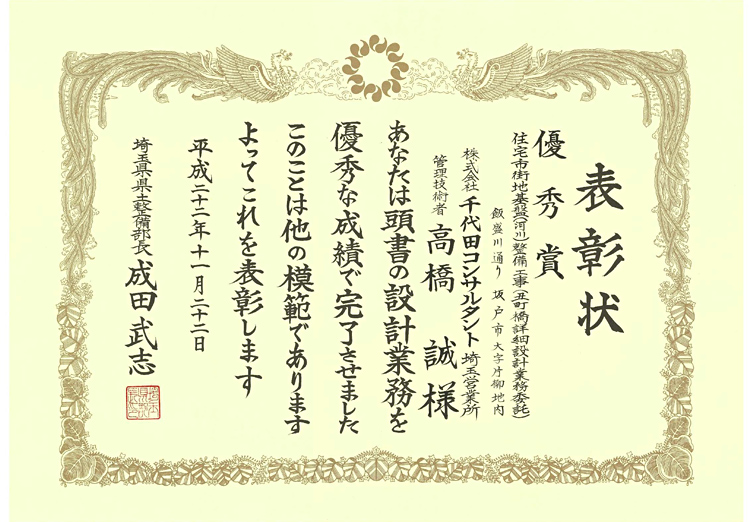 表彰状
優秀賞
住宅市街地基盤(河川)整備工事(五町橋詳細設計業務委託)
飯盛川通り 坂戸市大字片柳地内
株式会社 千代田コンサルタント 埼玉営業所
管理技術者 高橋 誠 様
あなたは頭書の設計業務を
優秀な成績で完了させました
このことは他の模範であります
よってこれを表彰します
平成二十二年十一月二十二日
埼玉県県土整備部長 成田武志